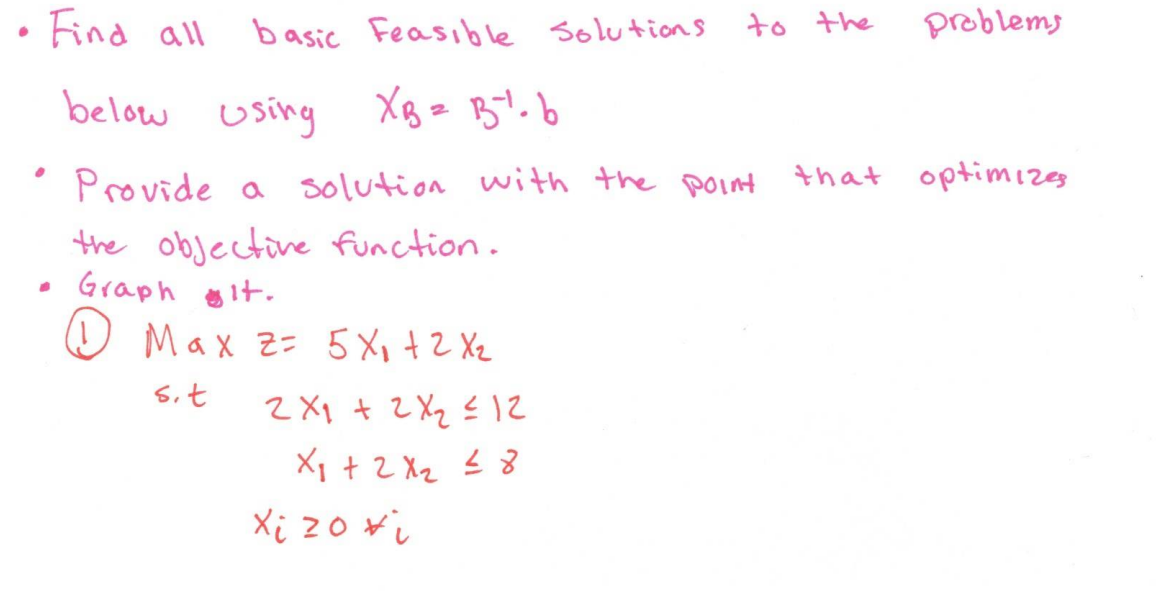 • Find all basic Feasible Solutions to the problems
below using XB = B⁻¹·b
• Provide a solution with the point that optimizes
the objective function.
• Graph it.
① Max z= 5X₁+2X₂
s.t 2X₁ + 2X₂ ≤ 12
X₁ + 2X₂ ≤ 8
Xi ≥0 ∀i